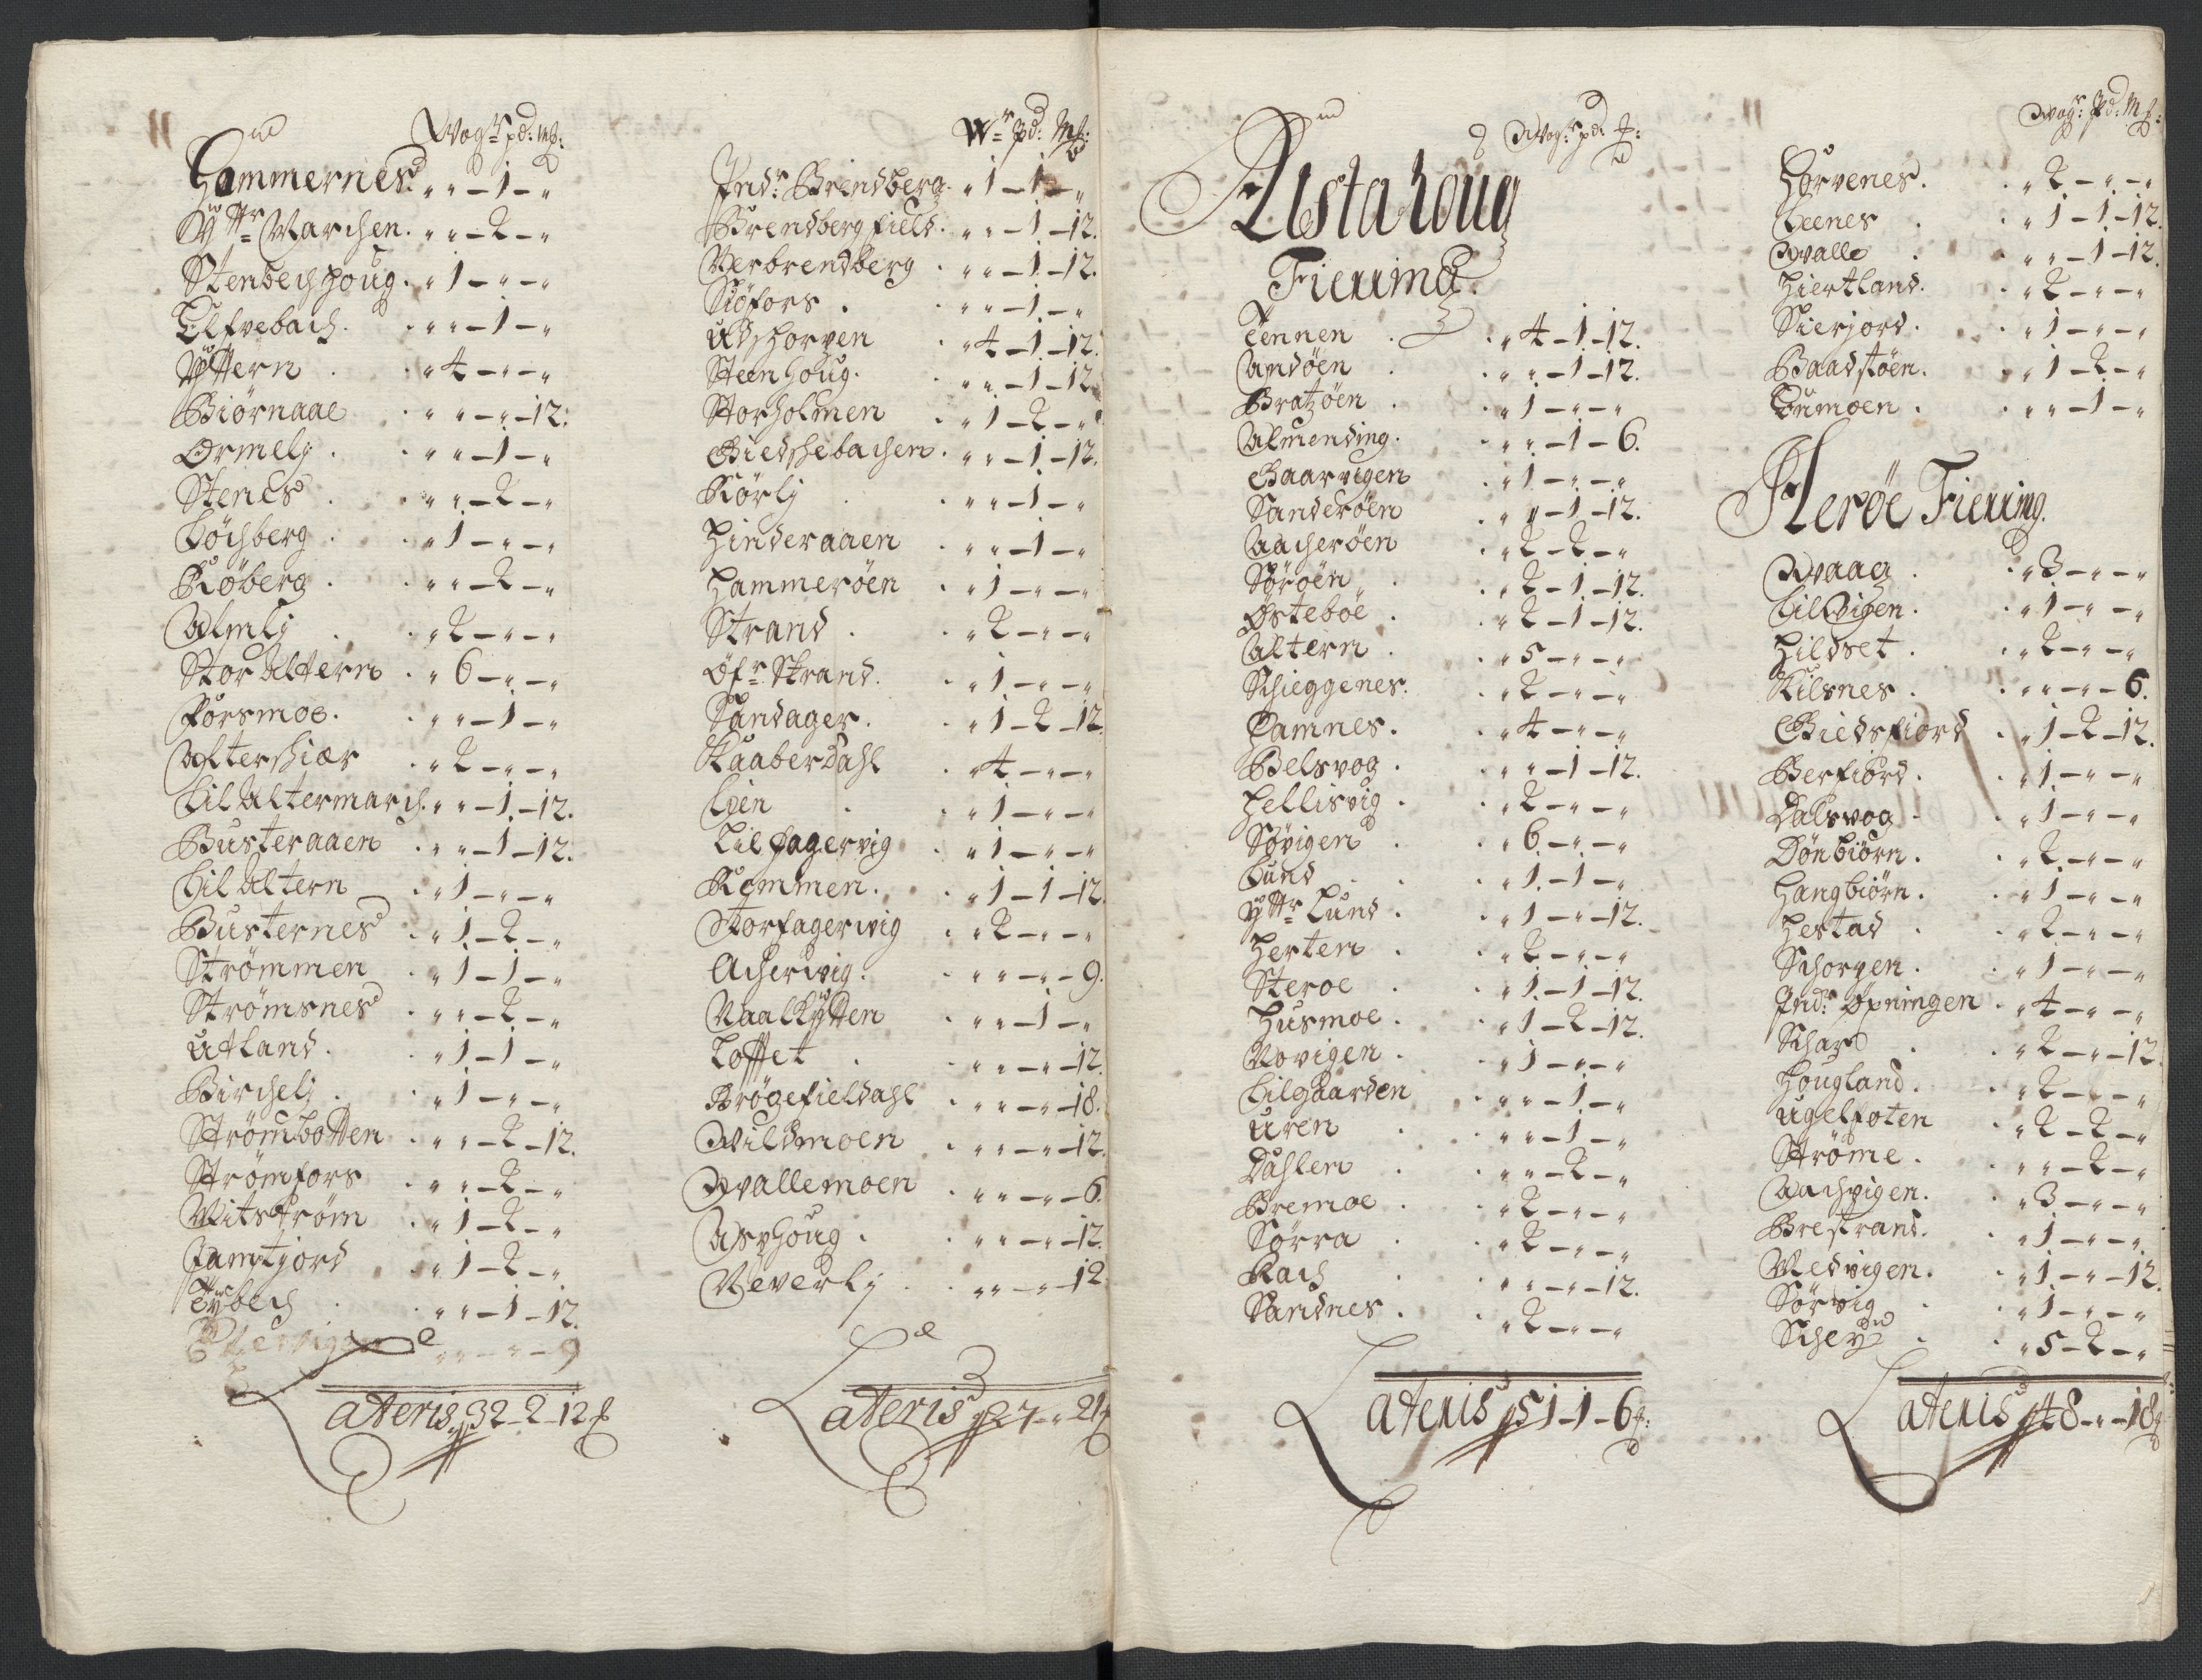 Wog: pd: Mk:
Hammernes „ „ – 1 – „
Yttr Marchen. „ „ – 2 – „
Stenbechhoug. „ 1 – „ – „
Elfvebach. „ „ – 1 – „
Yttern „ 4 – „ – „
Biörnaae „ „ – „ – 12:
Ormelj „ „ – 1 – „
Stenes „ „ – 2 – „
Löchberg „ 1 – „ – „
Röberg „ „ – 2 – „
Almlj „ 2 – „ – „
Stor Altern „ 6 – „ – „
Forsmoe. „ „ – 1 – „
Alterskiær „ 2 – „ – „
Lil Altermarch. „ „ – 1 – 12.
Busteraaen „ „ – 1 – 12:
Lil Altern „ 1 – „ – „
Busternes „ 1 – 2 – „
Strömmen „ 1 – 1 – „
Strömsnes „ „ – 2 – „
Utland. „ 1 – 1 – „
Birchelj „ 1 – „ – „
Strömbotten „ „ – 2 – 12.
Strömfors „ „ – 2 – „
Mitström „ 1 – 2 – „
Jamtjord „ 1 – 2 – „
Tybech „ „ – 1 – 12.
„ „ – „ – 9
Lateris 32 – 2 – 12
Wr pd: Mk:
Indr Brendberg. „ 1 – 1 – „
Brendbergfield. „ „ – 1 – 12.
Nerbrendberg „ „ – 1 – 12.
Siöfors „ „ – 1 – „
Udschorven „ 4 – 1 – 12.
Steenhoug. „ „ – 1 – 12
Storholmen „ 1 – 2 – „
Giedshebachen. „ „ – 1 – 12.
Rörlj „ „ – 1 – „
Hinderaaen „ „ – 1 – „
Hammeröen „ 1 – „ – „
Strand „ 2 – „ – „
Öfr Strand. „ 1 – „ – „
Sandager. „ 1 – 2 – 12.
Kaaberdahl „ 4 – „ – „
Lien „ 1 – „ – „
Lilfagervig „ 1 – „ – „
Remmen. „ 1 – 1 – 12.
Storfagervig „ 2 – „ – „
Achervig. „ „ – „ – 9.
Naalkytten „ „ – 1 – „
Loftet „ „ – „ – 12.
Brögefieldahl „ „ – „ – 18.
Wildmoen „ „ – „ – 12.
Wallemoen „ „ – „ – 6.
Asphoug „ „ – „ – 12.
Neverlj „ „ – „ – 12
Lateris 27 – „ 21
Wog: pd:
Alstahoug
Fierring
Tennen „ 4 – 1 – 12.
Andöen „ „ – 1 – 12.
Bratzöen „ 1 – „ – „
Almending. „ „ – 1 – 6.
Gaarvigen „ 1 – „ – „
Sanderöen „ „ – 1 – 12.
Aacheröen „ 2 – 2 – „
Söröen „ 2 – 1 – 12.
Østeboe „ 2 – 1 – 12.
Altern „ 5 – „ – „
Schieggenes. „ 2 – „ – „
Tamnes. „ 4 – „ – „
Belsvog „ „ – 1 – 12.
Hellisvig „ 2 – „ – „
Søvigen „ 6 – „ – „
Lund „ 1 – 1 – „
Yttr Lund „ 1 – „ – 12.
Herten „ 2 – „ – „
Steroe „ 1 – 1 – 12.
Husmoe. „ 1 – 2 – 12.
Novigen „ 1 – „ – „
Lilgaarden „ „ – 1 – „
Uren „ „ – 1 – „
Dahlen „ „ – 2 – „
Bremoe „ 2 – „ – „
Sörra „ 2 – „ – „
Rach „ „ – „ – 12.
Sandnes „ 2 – „ – „
Lateris 51 – 1 – 6
Wog: Pd: Mk:
Horvenes. „ 2 – „ – „
Leenes „ 1 – 1 – 12.
Walle „ „ – 1 – 12.
Hiertland. „ 2 – „ – „
Sierjord. „ 1 – „ – „
Baadstöen. „ 1 – 2 – „
Tumoen „ „ – 1 – „
Herøe Fierring.
Waag „ 3 – „ – „
Lilvigen. „ 1 – „ – „
Hildset „ 2 – „ – „
Kilsnes „ „ – „ – 6.
Giedsfiord „ 1 – 2 – 12.
Berfiord. „ 1 – „ – „
Dalsvog „ 1 – „ – „
Dönbiörn. „ 2 – „ – „
Hangbiörn. „ 1 – „ – „
Hestad „ 2 – „ – „
Schorpen. „ 1 – „ – „
Indr Øpningen „ 4 – „ – „
Schar „ 2 – „ – 12.
Hougland. „ 2 – „ – „
Ugelfoten „ 2 – 2 – „
Ströme „ „ – 2 – „
Aachvigen. „ 3 – „ – „
Brestrand. „ 1 – „ – „
Nedvigen. „ 1 – „ – 12.
Sörvig „ 1 – „ – „
Schey „ 5 – 2 – „
Lateris 48 – „ – 18